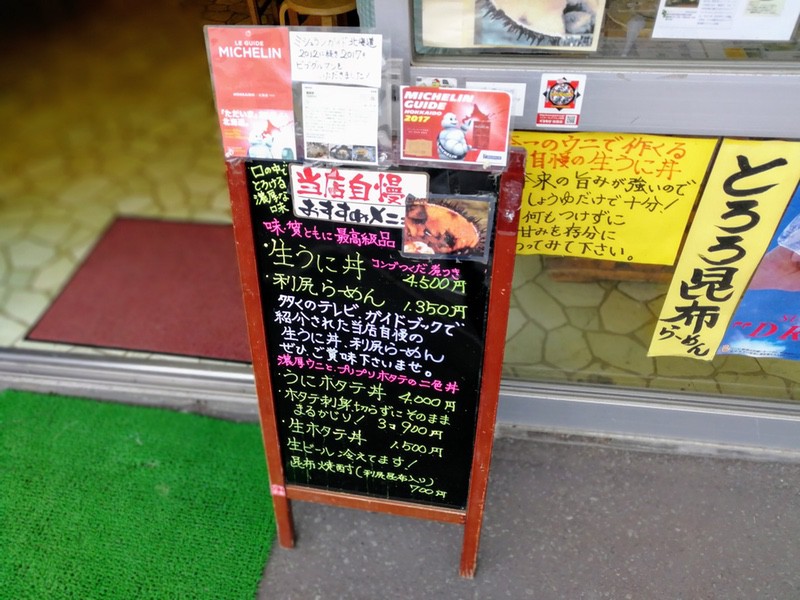 LE GUIDE
MICHELIN
「ただいま、
北海道。」
ミシュランガイド北海道
2012に続き2017も
ビブグルマンを
いただきました!
MICHELIN
GUIDE
HOKKAIDO
2017
口の中で
とろける
濃厚な
味
当店自慢
おすすめメニュー
味・質ともに最高級品
・生うに丼 コンブつくだ煮つき
4.500円
・利尻らーめん 1.350円
多くのテレビ、ガイドブックで
紹介された当店自慢の
生うに丼、利尻らーめん
ぜひご賞味下さいませ。
濃厚ウニと、プリプリホタテの二色丼
・うにホタテ丼 4.000円
・ホタテ刺身、切らずにそのまま
まるかじり! 3コ900円
・生ホタテ丼 1.500円
生ビール冷えてます!
昆布焼酎(利尻昆布入り)
700円
のウニで作くる
自慢の生うに丼
本来の旨みが強いので
しょうゆだけで十分!
何もつけずに
甘みを存分に
わってみて下さい。
とろろ昆布
らーめん